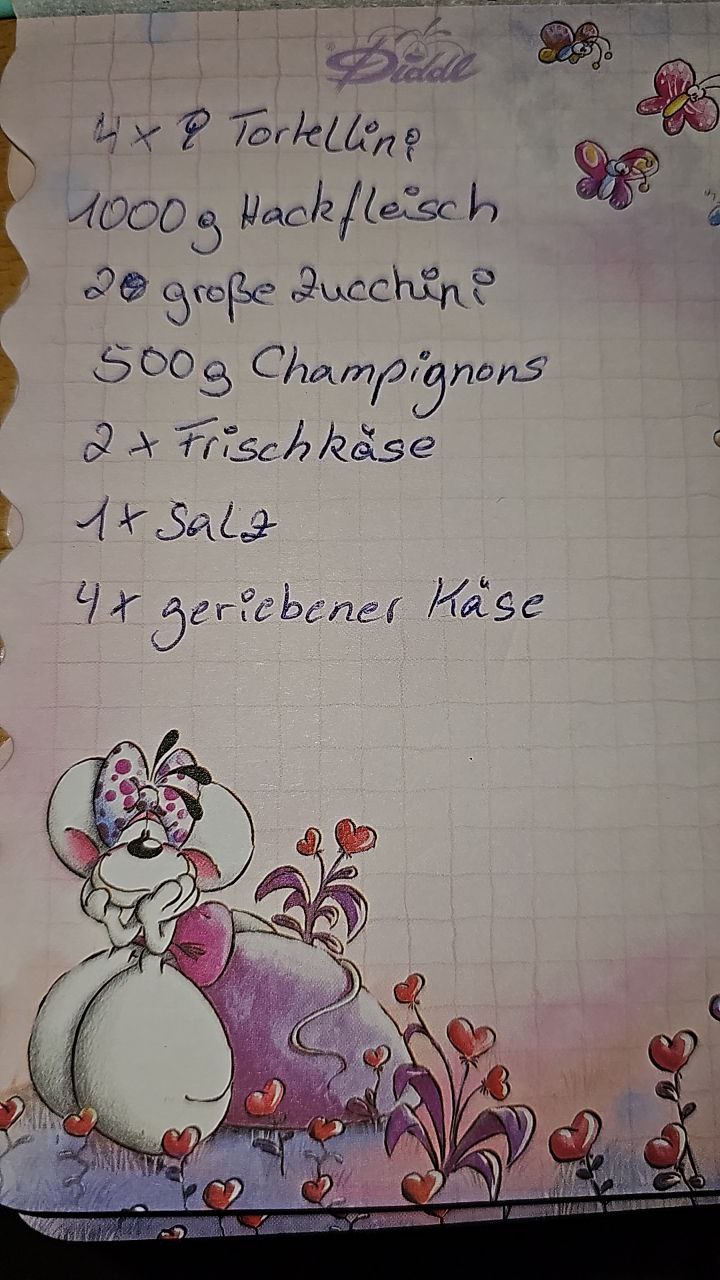 Diddl
4x Tortellini
1000g Hackfleisch
2 große Zucchini
500g Champignons
2x Frischkäse
1x Salz
4x geriebener Käse